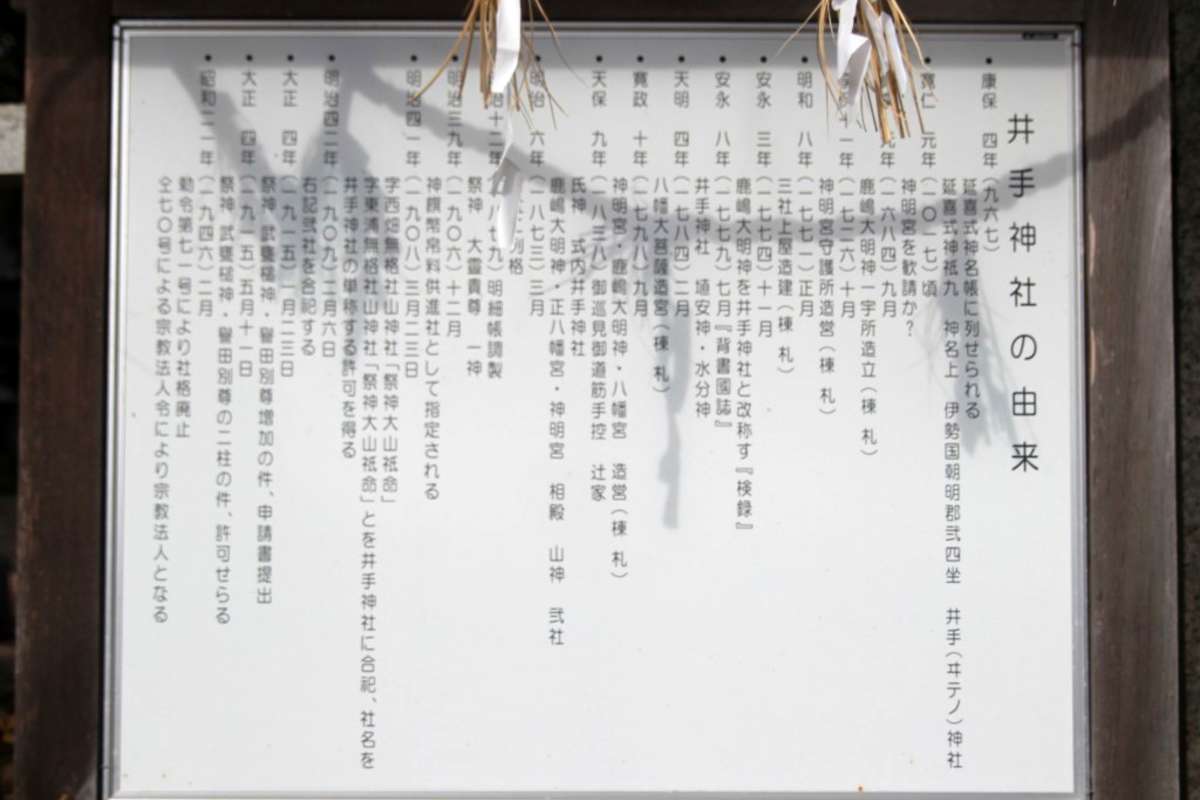 井手神社の由来
・康保 四年(九六七)
延喜式神名帳に列せられる
延喜式神祇九 神名上 伊勢国朝明郡弐四坐 井手(ヰテノ)神社
・寛仁 元年(一〇一七)頃
神明宮を歓請か?
元年(一六八四)九月
鹿嶋大明神一宇所造立(棟 札)
十一年(一七二六)十月
神明宮守護所造営(棟 札)
・明和 八年(一七七一)正月
三社上屋造建(棟 札)
・安永 三年(一七七四)十一月
鹿嶋大明神を井手神社と改称す『検録』
・安永 八年(一七七九)七月『背書國誌』
井手神社 埴安神・水分神
・天明 四年(一七八四)二月
八幡大菩薩造宮(棟 札)
・寛政 十年(一七九八)九月
神明宮・鹿嶋大明神・八幡宮 造営(棟 札)
・天保 九年(一八三八)御巡見御道筋手控 辻家
氏神 式内井手神社
鹿嶋大明神・正八幡宮・神明宮 相殿 山神 弐社
・明治 六年(一八七三)三月
列格
治十二年(一八七九)明細帳調製
祭神 大霊貴尊 一神
・明治三九年(一九〇六)十二月
神饌幣帛料供進社として指定される
・明治四一年(一九〇八)三月二三日
字西畑無格社山神社「祭神大山祇命」
字東浦無格社山神社「祭神大山祇命」とを井手神社に合祀、社名を
井手神社の単称する許可を得る
・明治四二年(一九〇九)二月六日
右記弐社を合祀する
・大正 四年(一九一五)一月二三日
祭神 武甕槌神・譽田別尊増加の件、申請書提出
・大正 四年(一九一五)五月十一日
祭神 武甕槌神・譽田別尊の二柱の件、許可せらる
・昭和二一年(一九四六)二月
勅令第七一号により社格廃止
仝七〇号による宗教法人令により宗教法人となる